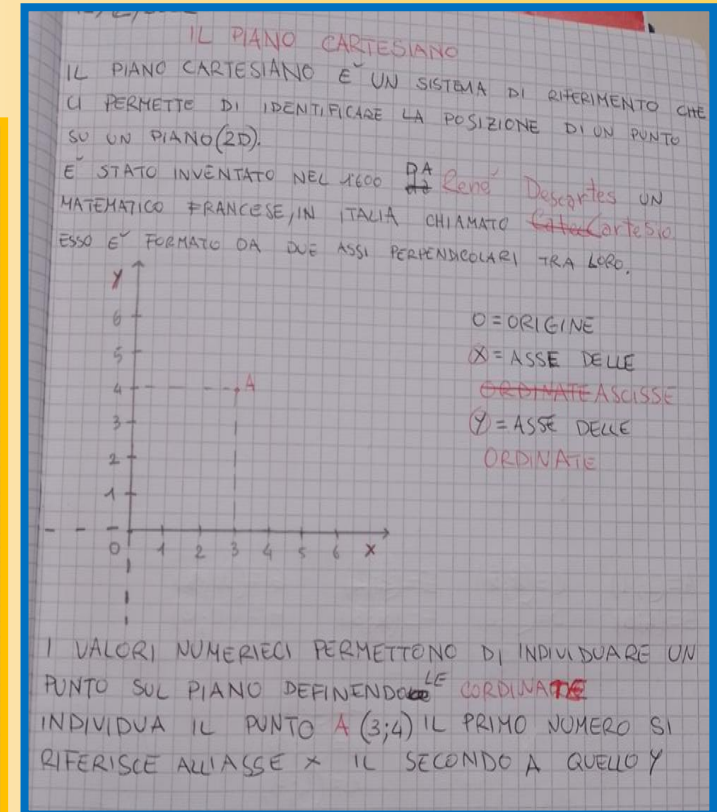 IL PIANO CARTESIANO
IL PIANO CARTESIANO E˘ UN SISTEMA DI RIFERIMENTO CHE
CI PERMETTE DI IDENTIFICARE LA POSIZIONE DI UN PUNTO
SU UN PIANO(2D).
E˘ STATO INVENTATO NEL 1600 DA René Descartes UN
MATEMATICO FRANCESE, IN ITALIA CHIAMATO Cartesio
ESSO E˘ FORMATO DA DUE ASSI PERPENDICOLARI TRA LORO.
Y
6
5
4 A
3
2
1
0 1 2 3 4 5 6 X
O = ORIGINE
X = ASSE DELLE
ORDINATE ASCISSE
Y = ASSE DELLE
ORDINATE
I VALORI NUMERIECI PERMETTONO DI INDIVIDUARE UN
PUNTO SUL PIANO DEFINENDO LE CORDINATE
INDIVIDUA IL PUNTO A (3;4) IL PRIMO NUMERO SI
RIFERISCE ALL'ASSE X IL SECONDO A QUELLO Y